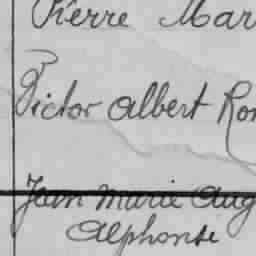 Pierre Mar
Victor Albert Ro
Jean Marie Aug
Alphonse